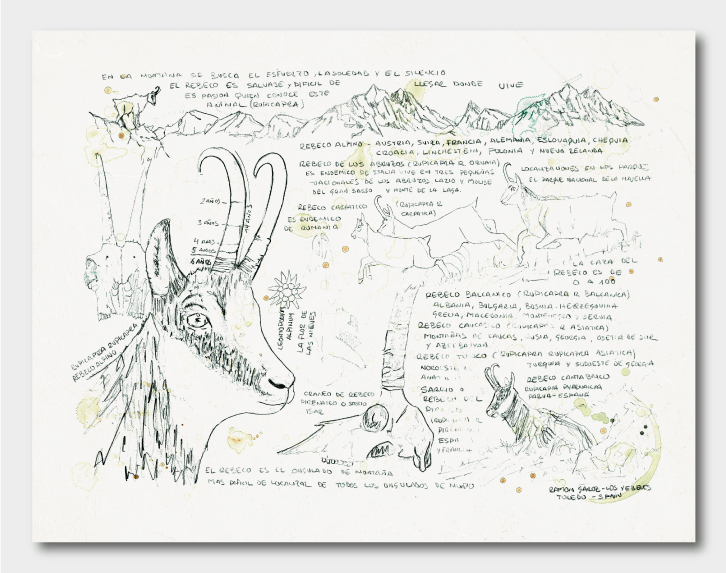 EN LA MONTAÑA SE BUSCA EL ESFUERZO, LA SOLEDAD Y EL SILENCIO
EL REBECO ES SALVAJE Y DIFICIL DE LLEGAR DONDE VIVE
ES PASION QUIEN CONOCE ESTE
ANIMAL (RUPICAPRA)
REBECO ALPINO - AUSTRIA, SUIZA, FRANCIA, ALEMANIA, ESLOVAQUIA, CHEQUIA
CROACIA, LINCHESTEIN, POLONIA Y NUEVA ZELANDA
REBECO DE LOS ABRUZOS (RUPICAPRA R. ORNATA)
ES ENDEMICO DE ITALIA VIVE EN TRES PEQUEÑAS
NACIONALES DE LOS ABRUZOS, LAZO Y MOLISE
DEL GRAN SASSO Y MONTE DE LA LAGA.
LOCALIZACIONES EN LOS
EL PARQUE NACIONAL DE LA MAJELLA
REBECO CARPATICO (RUPICAPRA R.
CARPATICA)
ES ENDEMICO
DE RUMANIA
2 AÑOS
3 AÑOS
4 AÑOS
5 AÑOS
6 AÑOS
AÑOS
LA CAZA DEL
REBECO ES DE
0 A 100
REBECO BALCANICO (RUPICAPRA R. BALCANICA)
ALBANIA, BULGARIA, BOSNIA-HERZEGOVINA
GRECIA, MACEDONIA, MONTENEGRO Y SERBIA
REBECO CAUCASICO (RUPICAPRA R. ASIATICA)
MONTAÑAS DE CAUCAS, RUSIA, GEORGIA, OSETIA DE SUR
Y AZERBAIYAN
REBECO TURCO (RUPICAPRA RUPICAPRA ASIATICA)
TURQUIA Y SUDOESTE DE GEORGIA
SARRIO O
REBECO DEL
REBECO CANTABRICO
RUPICAPRA PYRENAICA
PARVA - ESPAÑA
LEONTOPODIUM
ALPINUM
LA FLOR DE
LAS NIEVES
RUPICAPRA RUPICAPRA
REBECO ALPINO
CRANEO DE REBECO
PIRENAICO O SARRIO
ISAR
EL REBECO ES EL UNGULADO DE MONTAÑA
MAS DIFICIL DE LOCALIZAR DE TODOS LOS UNGULADOS DE MUNDO
RAMON GAROZ - LOS YEBENES
TOLEDO - SPAIN